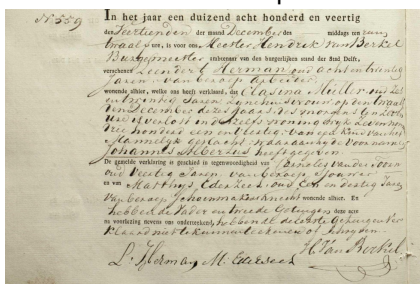 No 559
In het jaar een duizend acht honderd en veertig
den Veertienden der maand December des middags ten
twaalf ure, is voor ons, Meester Hendrik van Berkel
Burgemeester ambtenaar van den burgerlijken stand der Stad Delft,
verschenen Leendert Herman oud acht en twintig
Jaren, van beroep Arbeider
wonende alhier, welke ons heeft verklaard, dat Clasina Müller, oud Zes
en twintig Jaren zijne huisvrouw, op den twaalfden
December dezes jaars des morgens
ure is verlost in derzelver woning
drie honderd een en tzestig van een Kind van het
Mannelijk geslacht, waaraan hij de Voornamen
Johannes heeft gegeven
De gemelde verklaring is geschied in tegenwoordigheid van
oud Veertig Jaren, van beroep
en van Matthijs Ederzeel oud Een en dertig Jaren
van beroep Schoenmakersknecht wonende alhier. En
hebben de Vader en tweede Getuigen deze acte
na voorlezing nevens ons onderteekend, hebbende de eerste Getuige ver
klaard niet te kunnen teekenen of
L: Herman M. Ederzeel H. Van Berkel